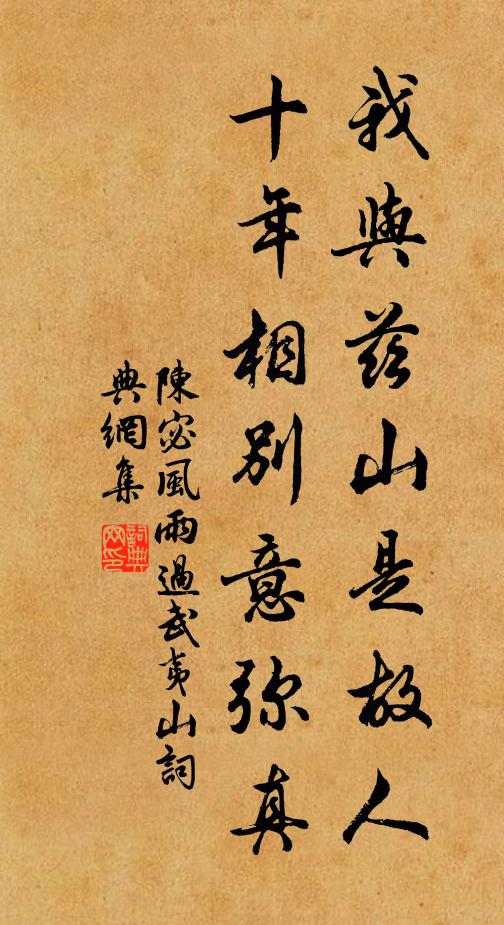 我與茲山是故人
十年相別意弥真
陳宓風雨過武夷山詞
典網集
詞典
网印